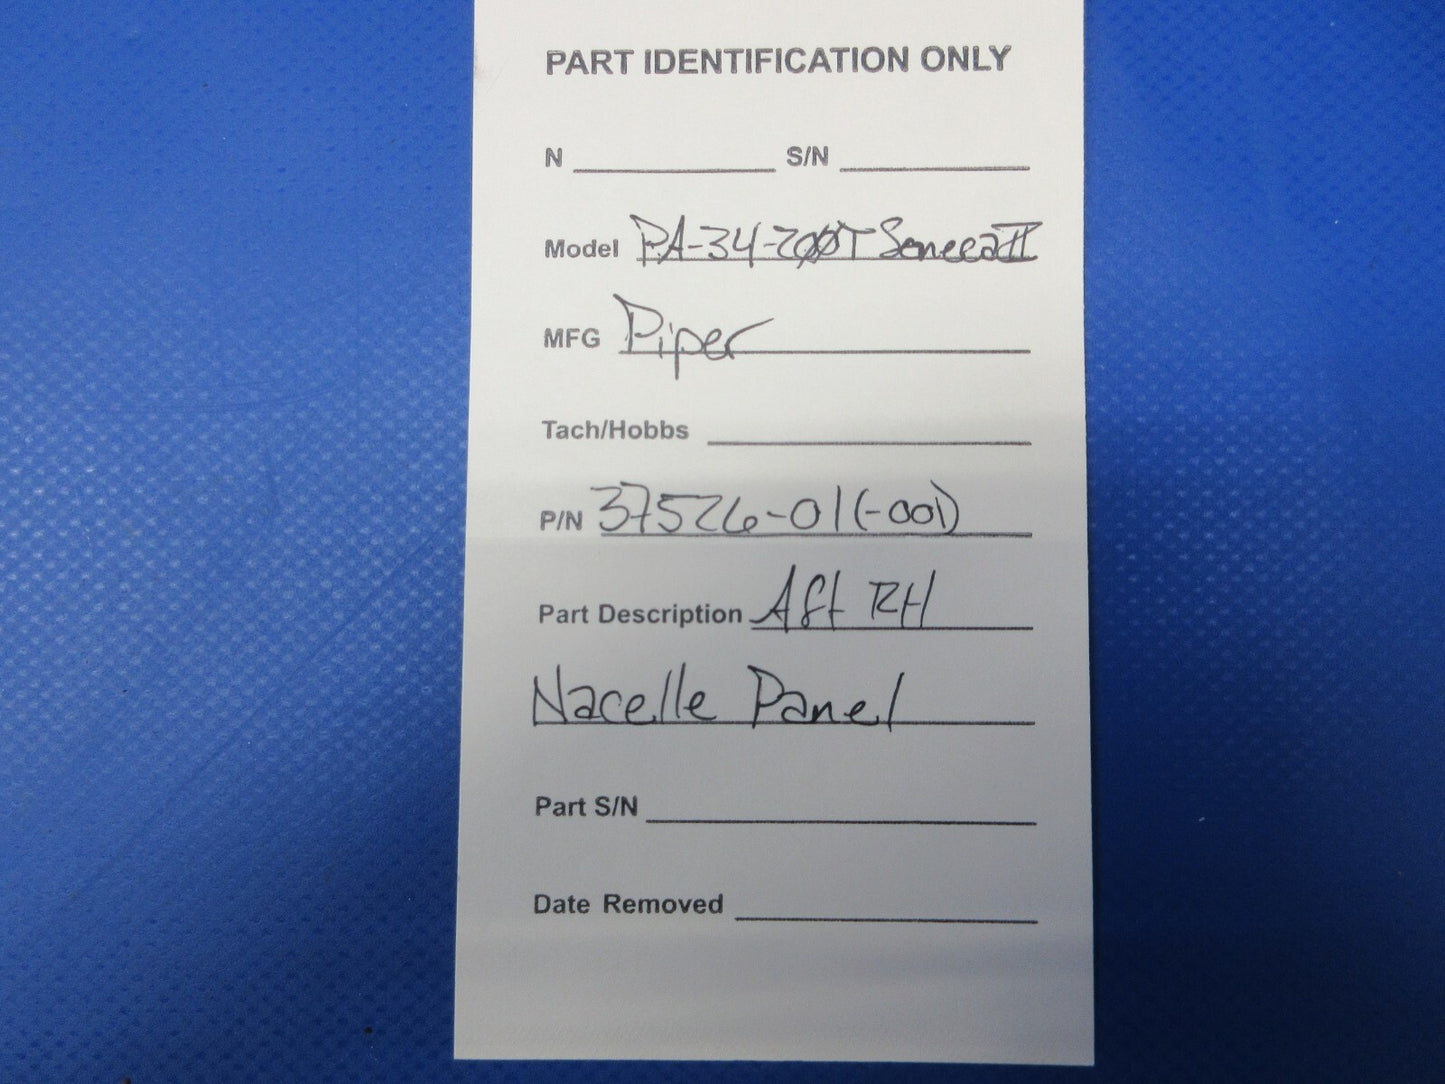 PART IDENTIFICATION ONLY
N S/N
Model PA-34-200T Seneca II
MFG Piper
Tach/Hobbs
P/N 37526-01 (-001)
Part Description Aft RH
Nacelle Panel
Part S/N
Date Removed